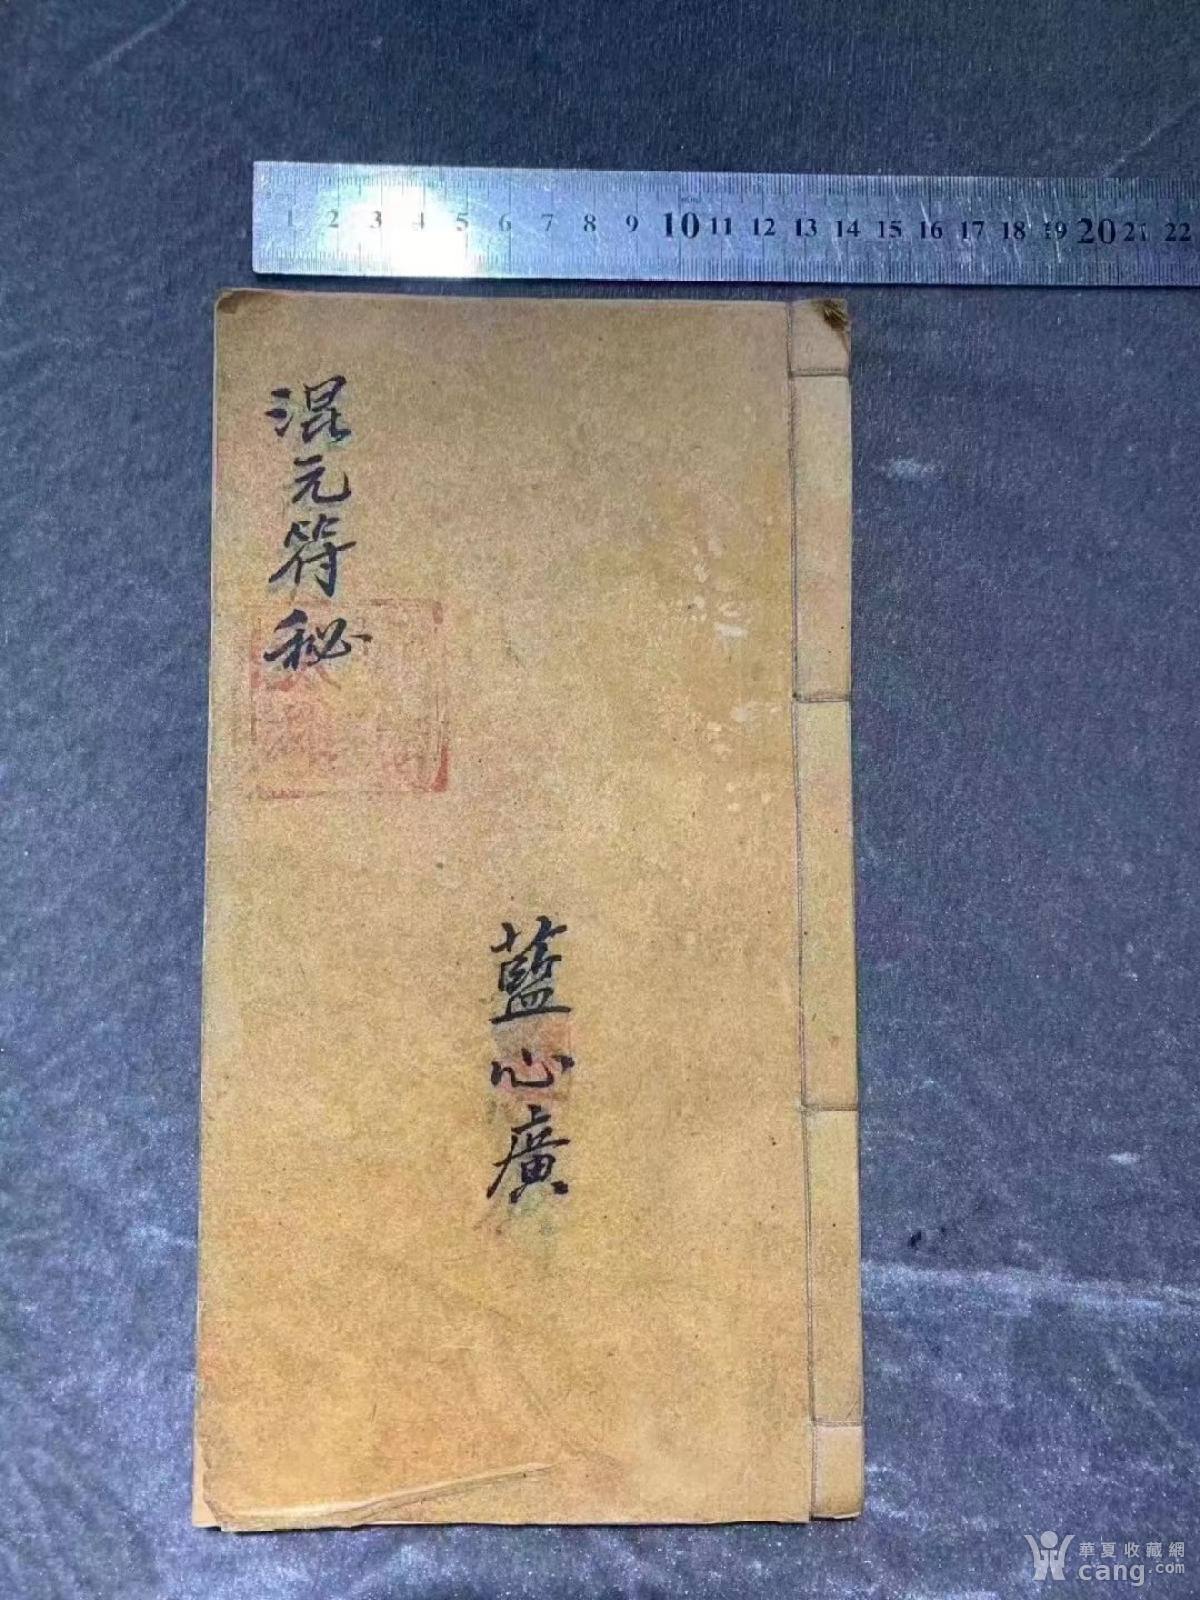 1 2 3 4 5 6 7 8 9 10 11 12 13 14 15 16 17 18 19 20 21 22
混元符秘
藍心廣
華夏收藏網
cang.com